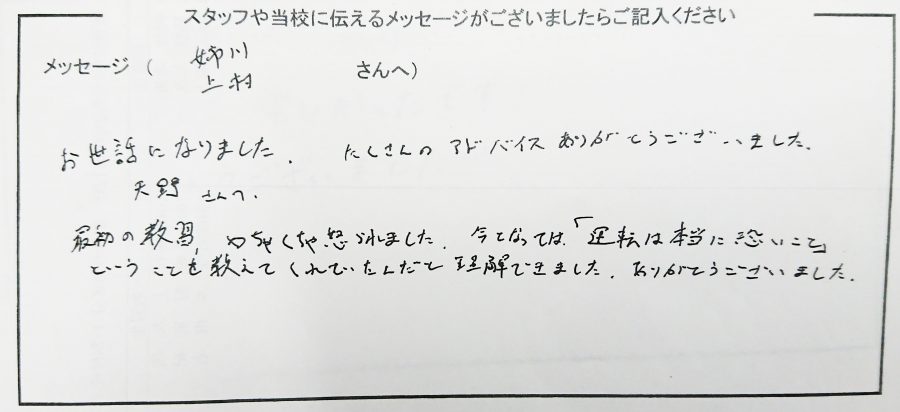 スタッフや当校に伝えるメッセージがございましたらご記入ください
姉川
メッセージ ( さんへ)
上村
お世話になりました. たくさんのアドバイスありがとうございました.
天野さんへ.
最初の教習, めちゃくちゃ怒られました. 今となっては、「運転は本当に恐いこと」
ということを教えてくれていたんだと理解できました. ありがとうございました.